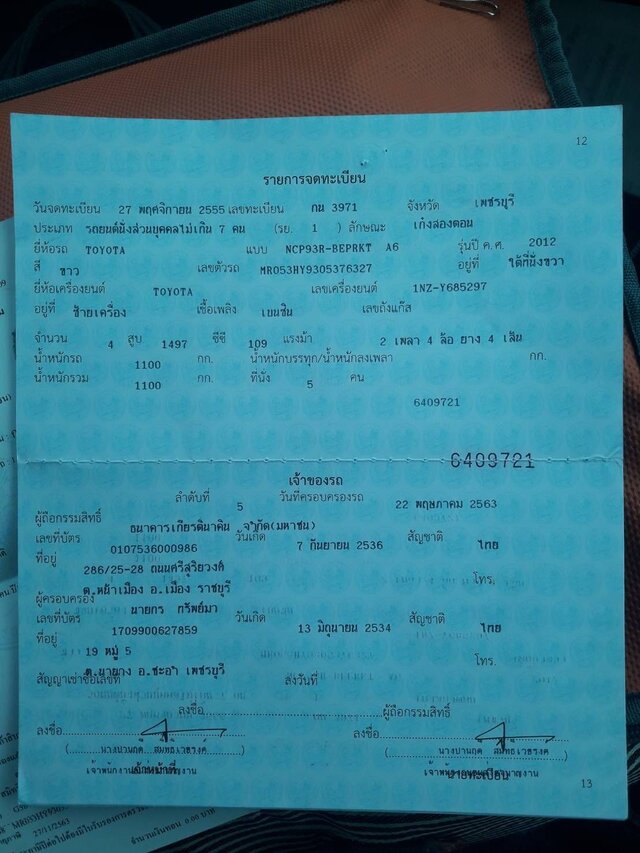 12
รายการจดทะเบียน
วันจดทะเบียน 27 พฤศจิกายน 2555 เลขทะเบียน กน 3971 จังหวัด เพชรบุรี
ประเภท รถยนต์นั่งส่วนบุคคลไม่เกิน 7 คน (รย. 1 ) ลักษณะ เก๋งสองตอน
ยี่ห้อรถ TOYOTA แบบ NCP93R-BEPRKT A6 รุ่นปี ค.ศ. 2012
สี ขาว เลขตัวรถ MR053HY9305376327 อยู่ที่ ใต้ที่นั่งขวา
ยี่ห้อเครื่องยนต์ TOYOTA เลขเครื่องยนต์ 1NZ-Y685297
อยู่ที่ ซ้ายเครื่อง เชื้อเพลิง เบนซิน เลขถังแก๊ส
จำนวน 4 สูบ 1497 ซีซี 109 แรงม้า 2 เพลา 4 ล้อ ยาง 4 เส้น
น้ำหนักรถ 1100 กก. น้ำหนักบรรทุก/น้ำหนักลงเพลา กก.
น้ำหนักรวม 1100 กก. ที่นั่ง 5 คน
6409721
6409721
เจ้าของรถ
ลำดับที่ 5 วันที่ครอบครองรถ 22 พฤษภาคม 2563
ผู้ถือกรรมสิทธิ์ ธนาคารเกียรตินาคิน จำกัด(มหาชน)
เลขที่บัตร 0107536000986 วันเกิด 7 กันยายน 2536 สัญชาติ ไทย
ที่อยู่ 286/25-28 ถนนศรีสุริยวงศ์ โทร.
ต.หน้าเมือง อ.เมือง ราชบุรี
ผู้ครอบครอง นายกร ทรัพย์มา
เลขที่บัตร 1709900627859 วันเกิด 13 มิถุนายน 2534 สัญชาติ ไทย
ที่อยู่ 19 หมู่ 5 โทร.
ต.นายาง อ.ชะอำ เพชรบุรี
สัญญาเช่าซื้อเลขที่ ลงวันที่
ลงชื่อ ผู้ถือกรรมสิทธิ์
ลงชื่อ ลงชื่อ
เจ้าหน้าที่ นายทะเบียน
13
27/11/2563
จำนวนเงินทอน 0.00 บาท